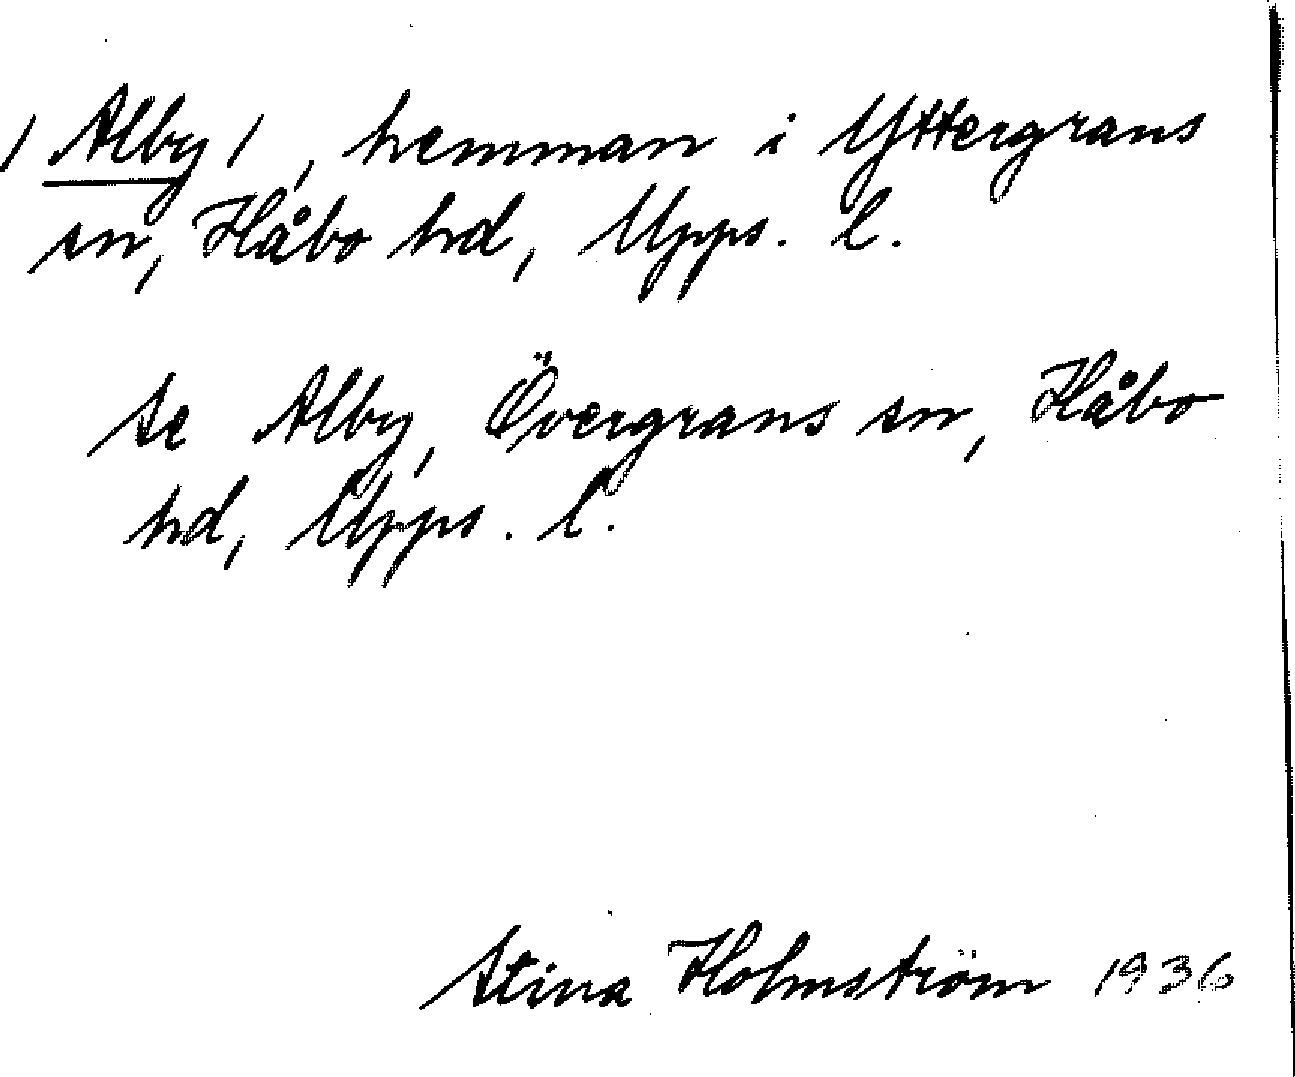 / Alby /, hemman i Yttergrans
sn, Håbo hd, Upps. l.
se Alby, Övergrans sn, Håbo
hd, Upps. l.
Stina Holmström 1936